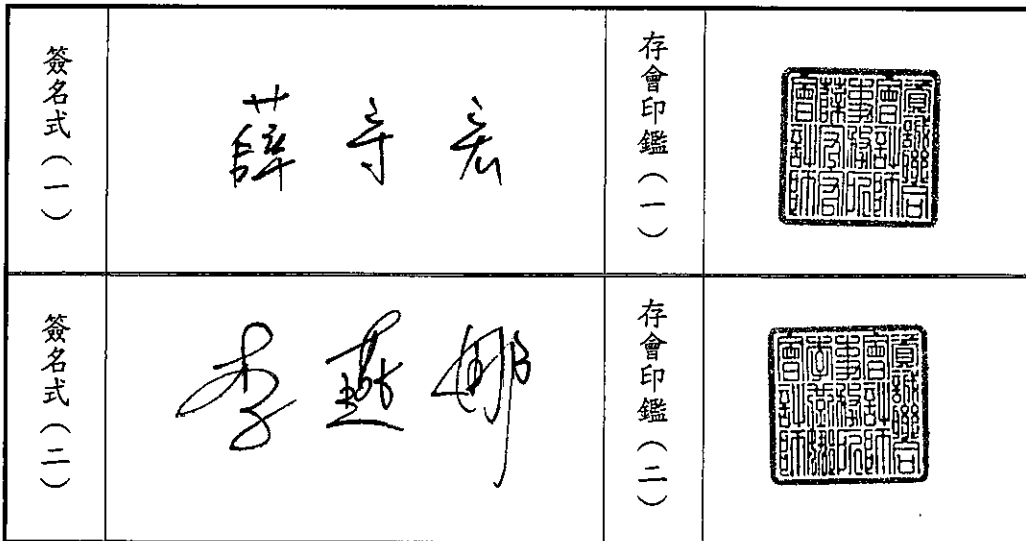 簽名式（一）
薛守宏
存會印鑑（一）
資誠聯合
會計師
事務所
薛守宏
會計師
簽名式（二）
李燕娜
存會印鑑（二）
資誠聯合
會計師
事務所
李燕娜
會計師